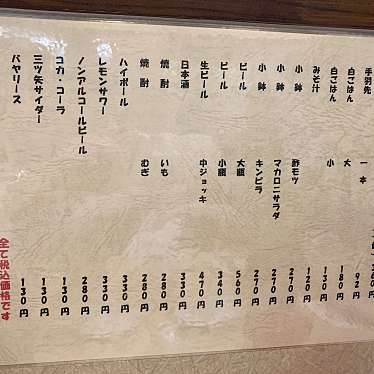 手羽先 一本 92円
白ごはん 大 180円
白ごはん 小 130円
みそ汁 120円
小鉢 酢モツ 270円
小鉢 マカロニサラダ 270円
小鉢 キンピラ 270円
ビール 大瓶 560円
ビール 小瓶 340円
生ビール 中ジョッキ 470円
日本酒 330円
焼酎 いも 280円
焼酎 むぎ 280円
ハイボール 330円
レモンサワー 330円
ノンアルコールビール 280円
コカ・コーラ 130円
三ツ矢サイダー 130円
バヤリース 130円
全て税込価格です